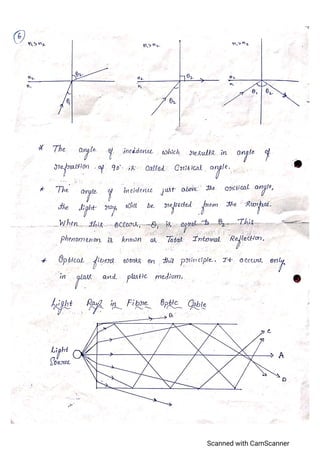 6
n₁>n₂ n₁>n₂ n₁>n₂
θ₂ θ₂
n₂ n₂ n₂
n₁ n₁ n₁
θ₁ θ₂ θ₁ θ₂
* The angle of incidence which results in angle of
refraction of 90° is called Critical angle.
* The angle of incidence just above the critical angle,
the light ray will be reflected from the
When this occurs, θ₁ is equal to θ₂. This
phenomenon is known as Total Internal Reflection.
* Optical fibers works on this principle. It occurs only
in glass and plastic medium.
Light Rays in Fibre Optic Cable
B
C
Light
Source
A
D
Scanned with CamScanner